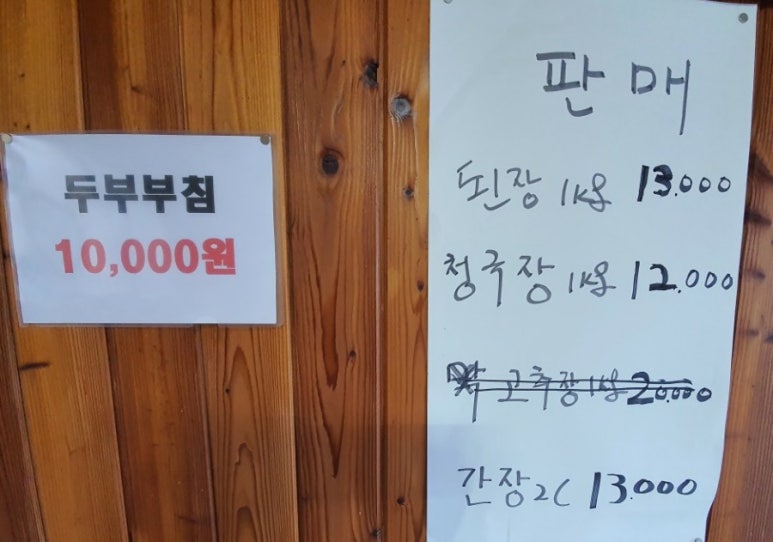 두부부침
10,000원
판매
된장 1kg 13.000
청국장 1kg 12.000
고추장 1kg 20.000
간장 2L 13.000